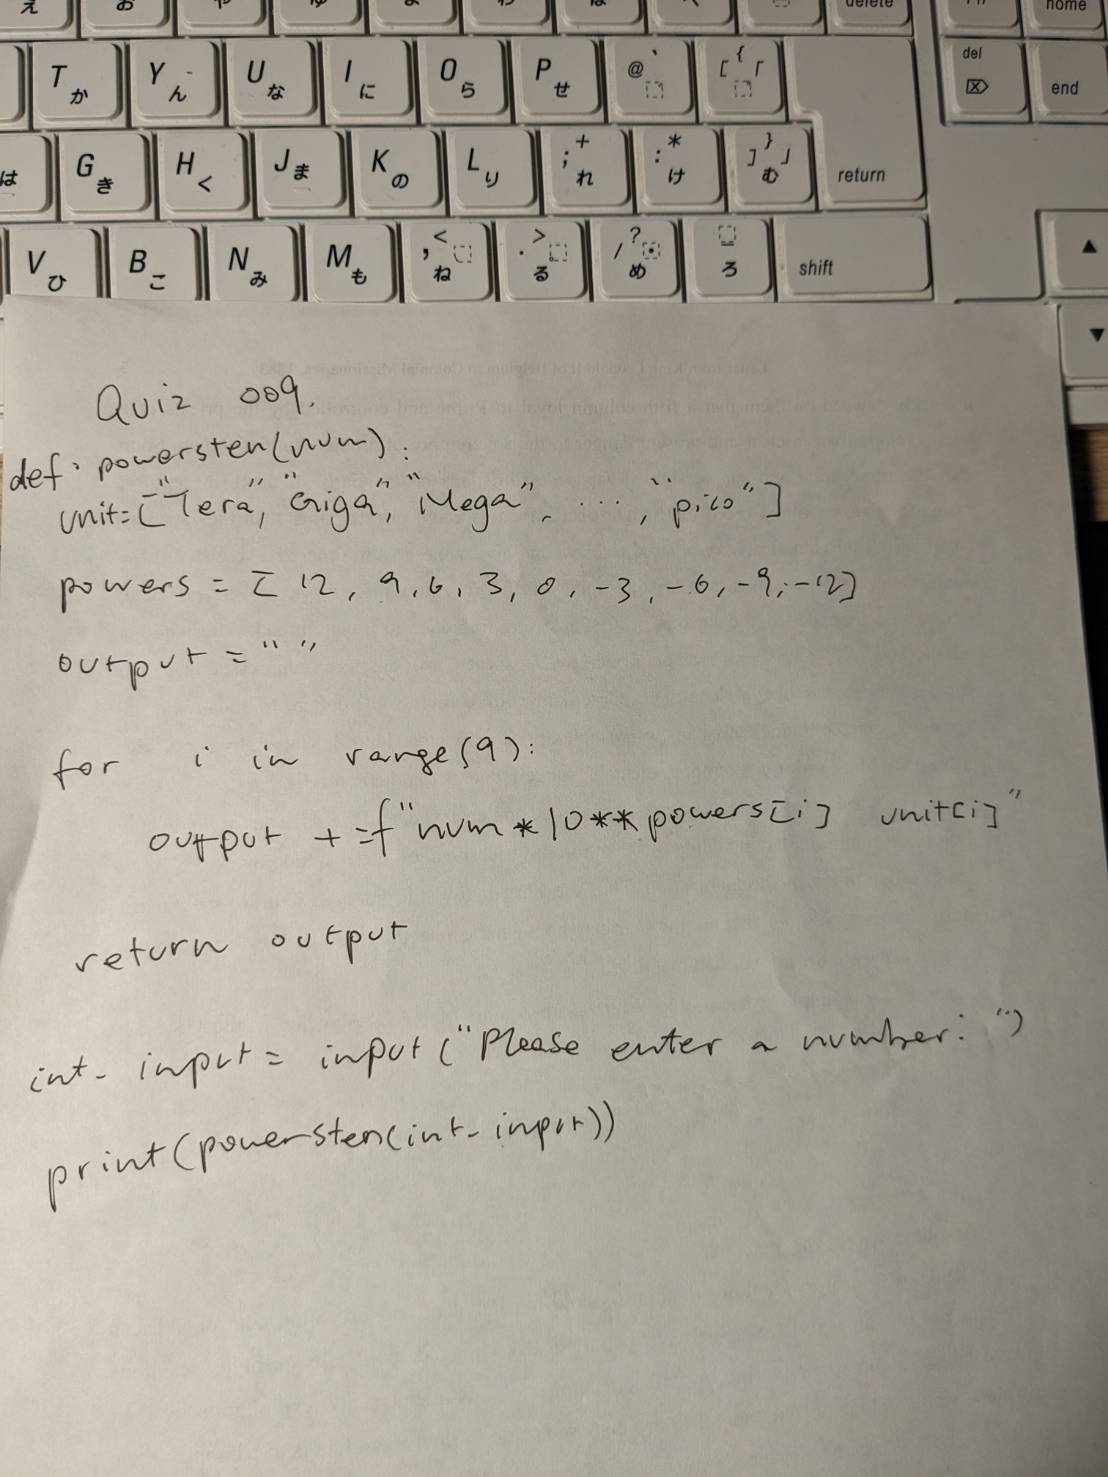 え お や ゆ よ わ ほ へ delete Fn home
T か Y ん U な I に O ら P せ @ ` [ { 「 del ⌦ end
は G き H く J ま K の L り ; + れ : * け ] } 」 む return
V ひ B こ N み M も , < ね . > る / ? め _ ろ shift ▲
▼
Quiz 009.
def powersten(num):
unit=["Tera", "Giga", "Mega", ..., "pico"]
powers = [12, 9, 6, 3, 0, -3, -6, -9, -12]
output = " "
for i in range(9):
output +=f"num*10**powers[i] unit[i]"
return output
int_input = input("Please enter a number: ")
print(powersten(int_input))